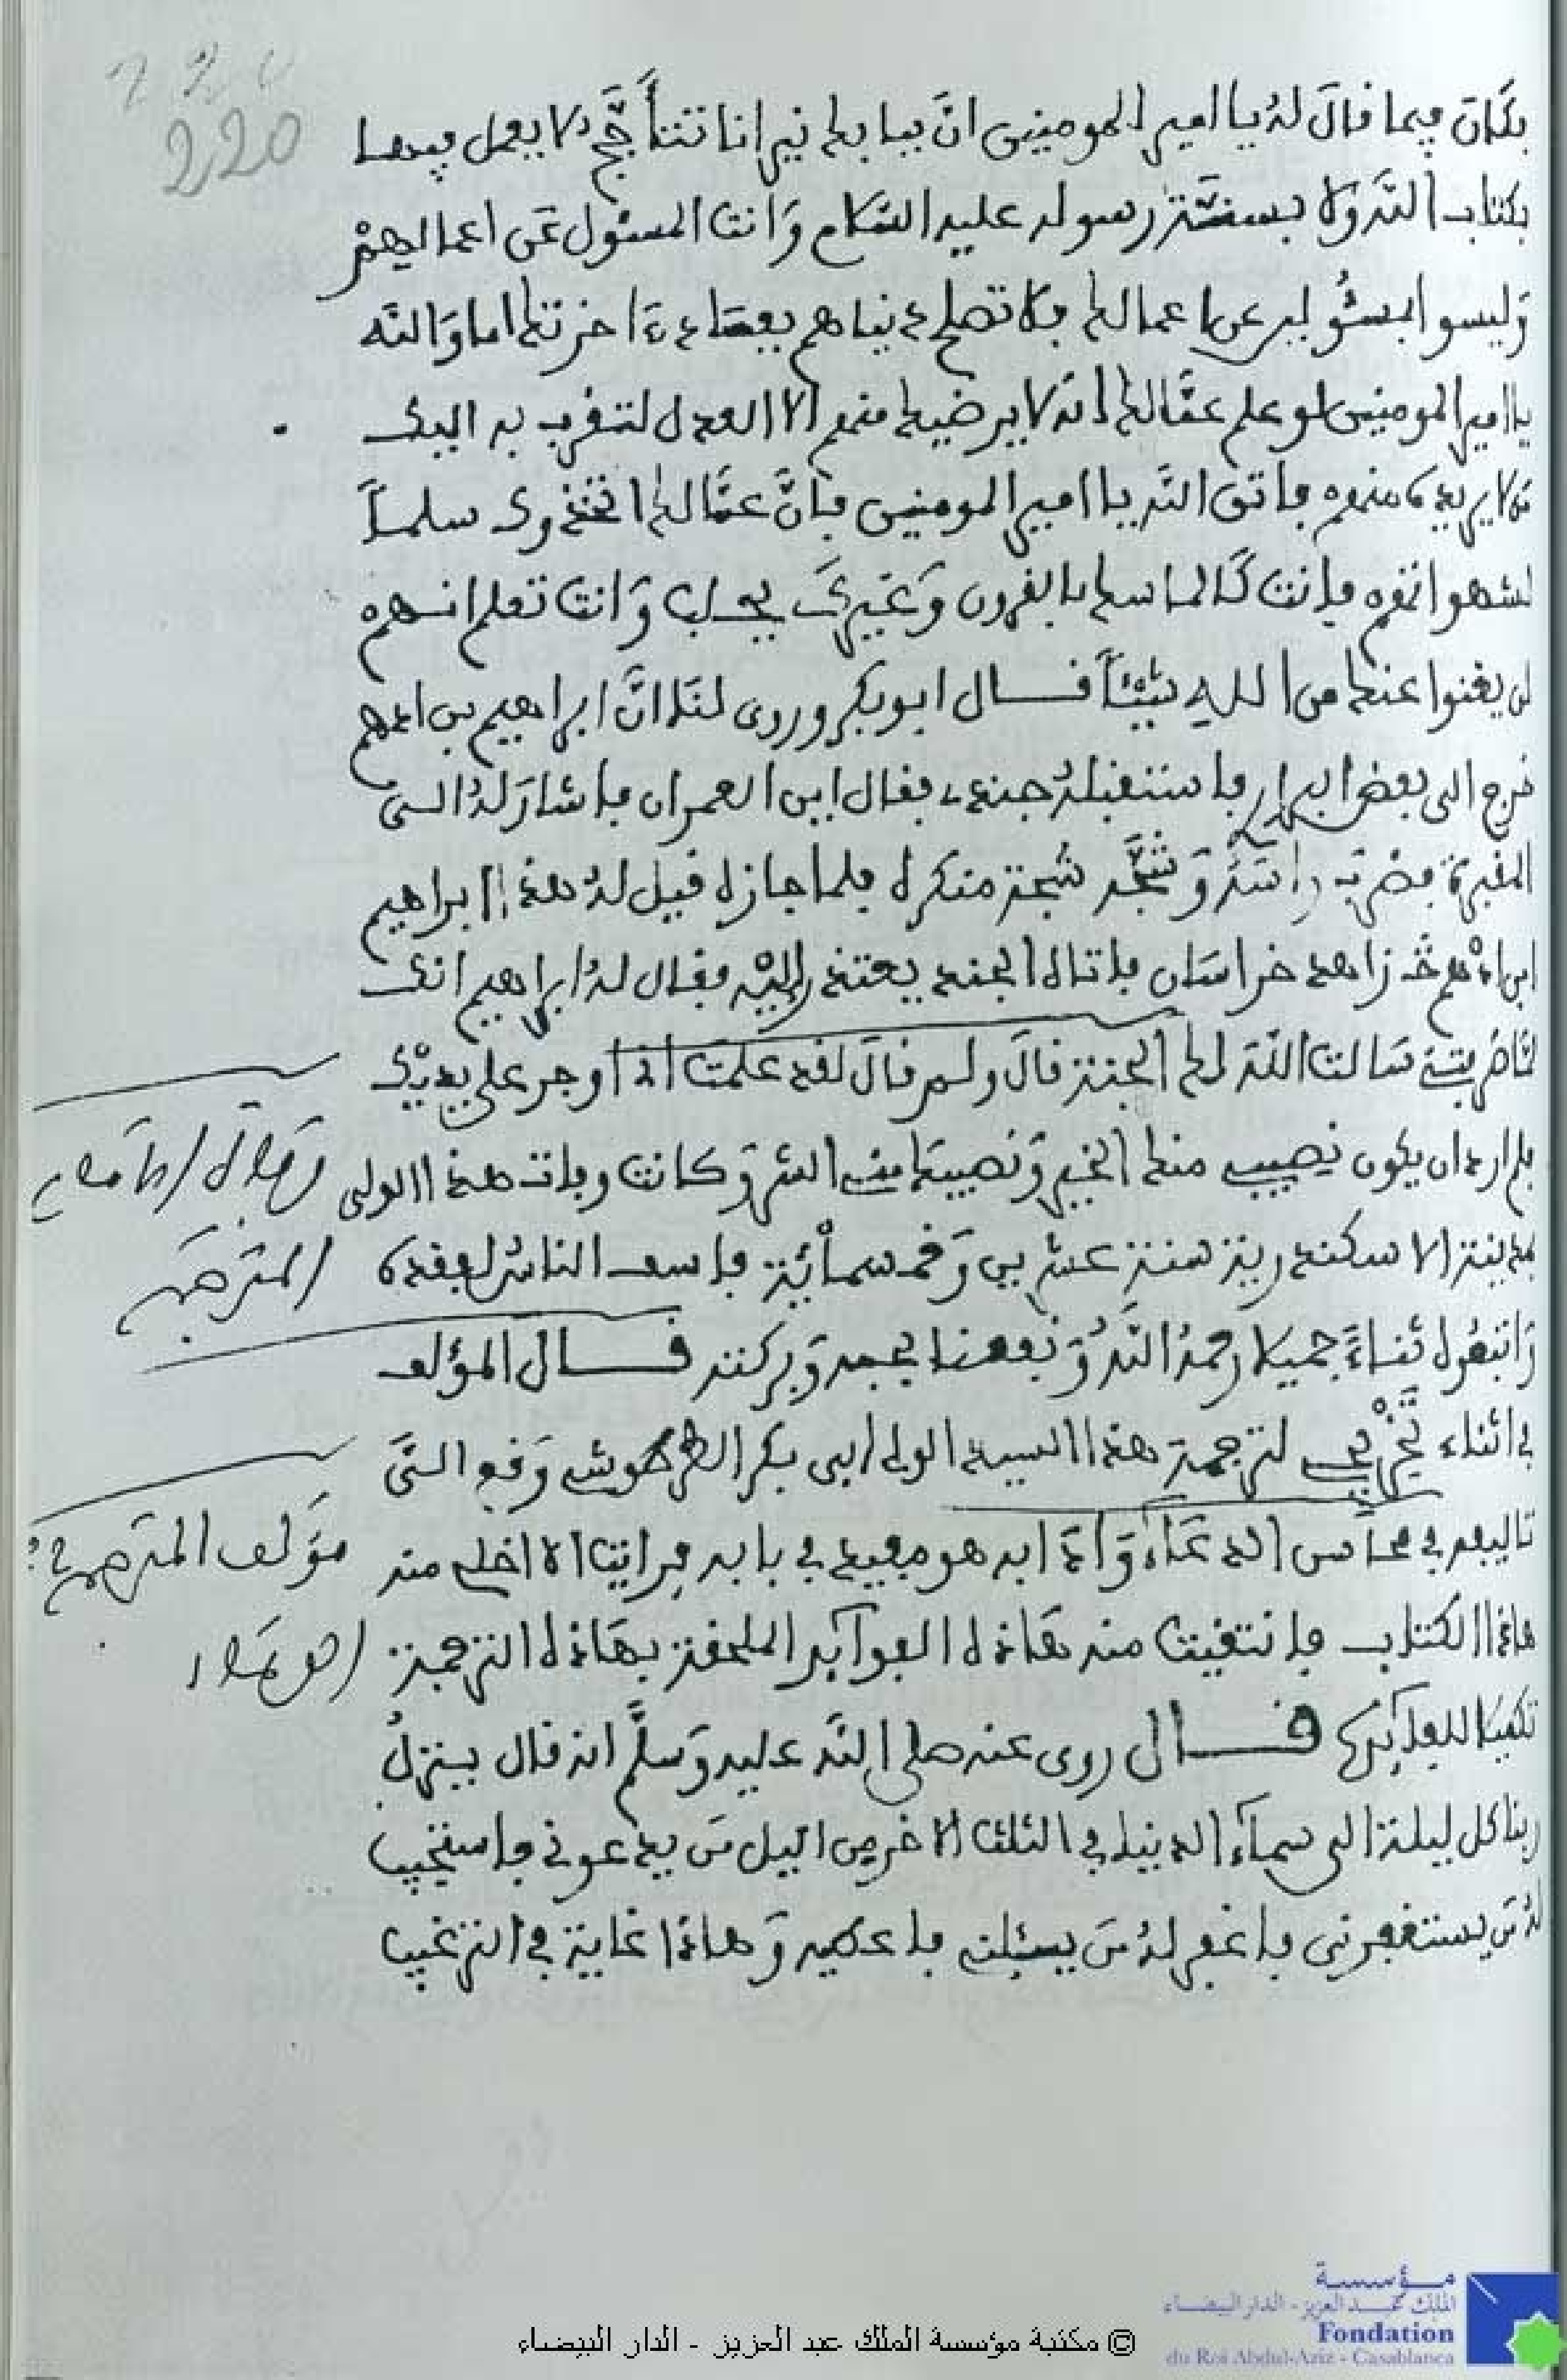 220
220
فكان فيما قال له يا امير المومنين انَّ ببابك نيرانا تتأجَّج لا يعمل فيها
بكتاب الله ولا بسنَّة رسوله عليه السَّلام وَانت المسئول عَن اعمالهمْ
وَليسوا بمسئُولين عن اعمالك فلا تصلح دنياهم بفساد ءاخرتك اما وَالله
يا امير المومنين لو علم عمَّالك انه لا يرضيك منهم الا العدل لتقرب به اليك
مَن لا يريده منهم فاتق الله يا امير المومنين فانَّ عمَّالك اتخذوك سلماً
لشهواتهم فانت كَالماسك بالقرون وَغيركَ يحلب وَانت تعلم انهم
لن يغنوا عنك من الله شيئاً قال ابو بكر وروى لنَا انَّ ابراهيم بن ادهم
خرج الى بعض البرارى فاستقبله جندى فقال اين العمران فاشارَ له الى
المقبرة فضربَ راسَهُ وَشجَّه شجة منكرة فلما جازه قيل له هذا ابراهيم
ابن ادْهم زاهد خراسَان فاتاه الجندى يعتذر اليْه فقال له ابراهيم انك
لمَّا ضربتنى سَالت الله لك الجنة قالَ ولم قالَ لقد علمتُ انى اوجر على يديْك
فلم ارد ان يكون نصيبى منك الخير وَنصيبك منى الشر وَكانت وفاة هذا الولى
بمدينة الاسكندرية سنة عشرين وَخمسمائة فاسف الناس لفقده
وَاتبعُوه ثناءً جميلا رحمهُ الله وَنفعنا بحبه وَبركته قال المؤلف
فى اثناء تخْريجى لترجمة هذا السيد الولى ابى بكر الطرطوشى وَقع الىَّ
تاليفه فى محاسن الدعَاءَ وَادابه هو مفيد فى بابه فرايت الا اخلى منه
هاذا الكتاب فانتقيت منه هَاذه الفوآئد الملحقة بهَاذه الترجمة
تكميلا للفآئدة قال روى عنه صلى الله عليه وَسلَّم انه قال ينزلُ
ربنا كل ليلة الى سمآء الدنيا فى الثلث الاخر من اليل مَن يدعونى فاستجيب
لهُ مَن يستغفرنى فاغفر لهُ مَن يسئلنى فاعطيه وَهاذا غاية فى الترغيب
وفاة الامام
المترجَم
مؤلف المترجم فى
الدعاء
مؤسسة
الملك عبد العزيز - الدار البيضاء
Fondation
du Roi Abdul-Aziz - Casablanca
© مكتبة مؤسسة الملك عبد العزيز - الدار البيضاء